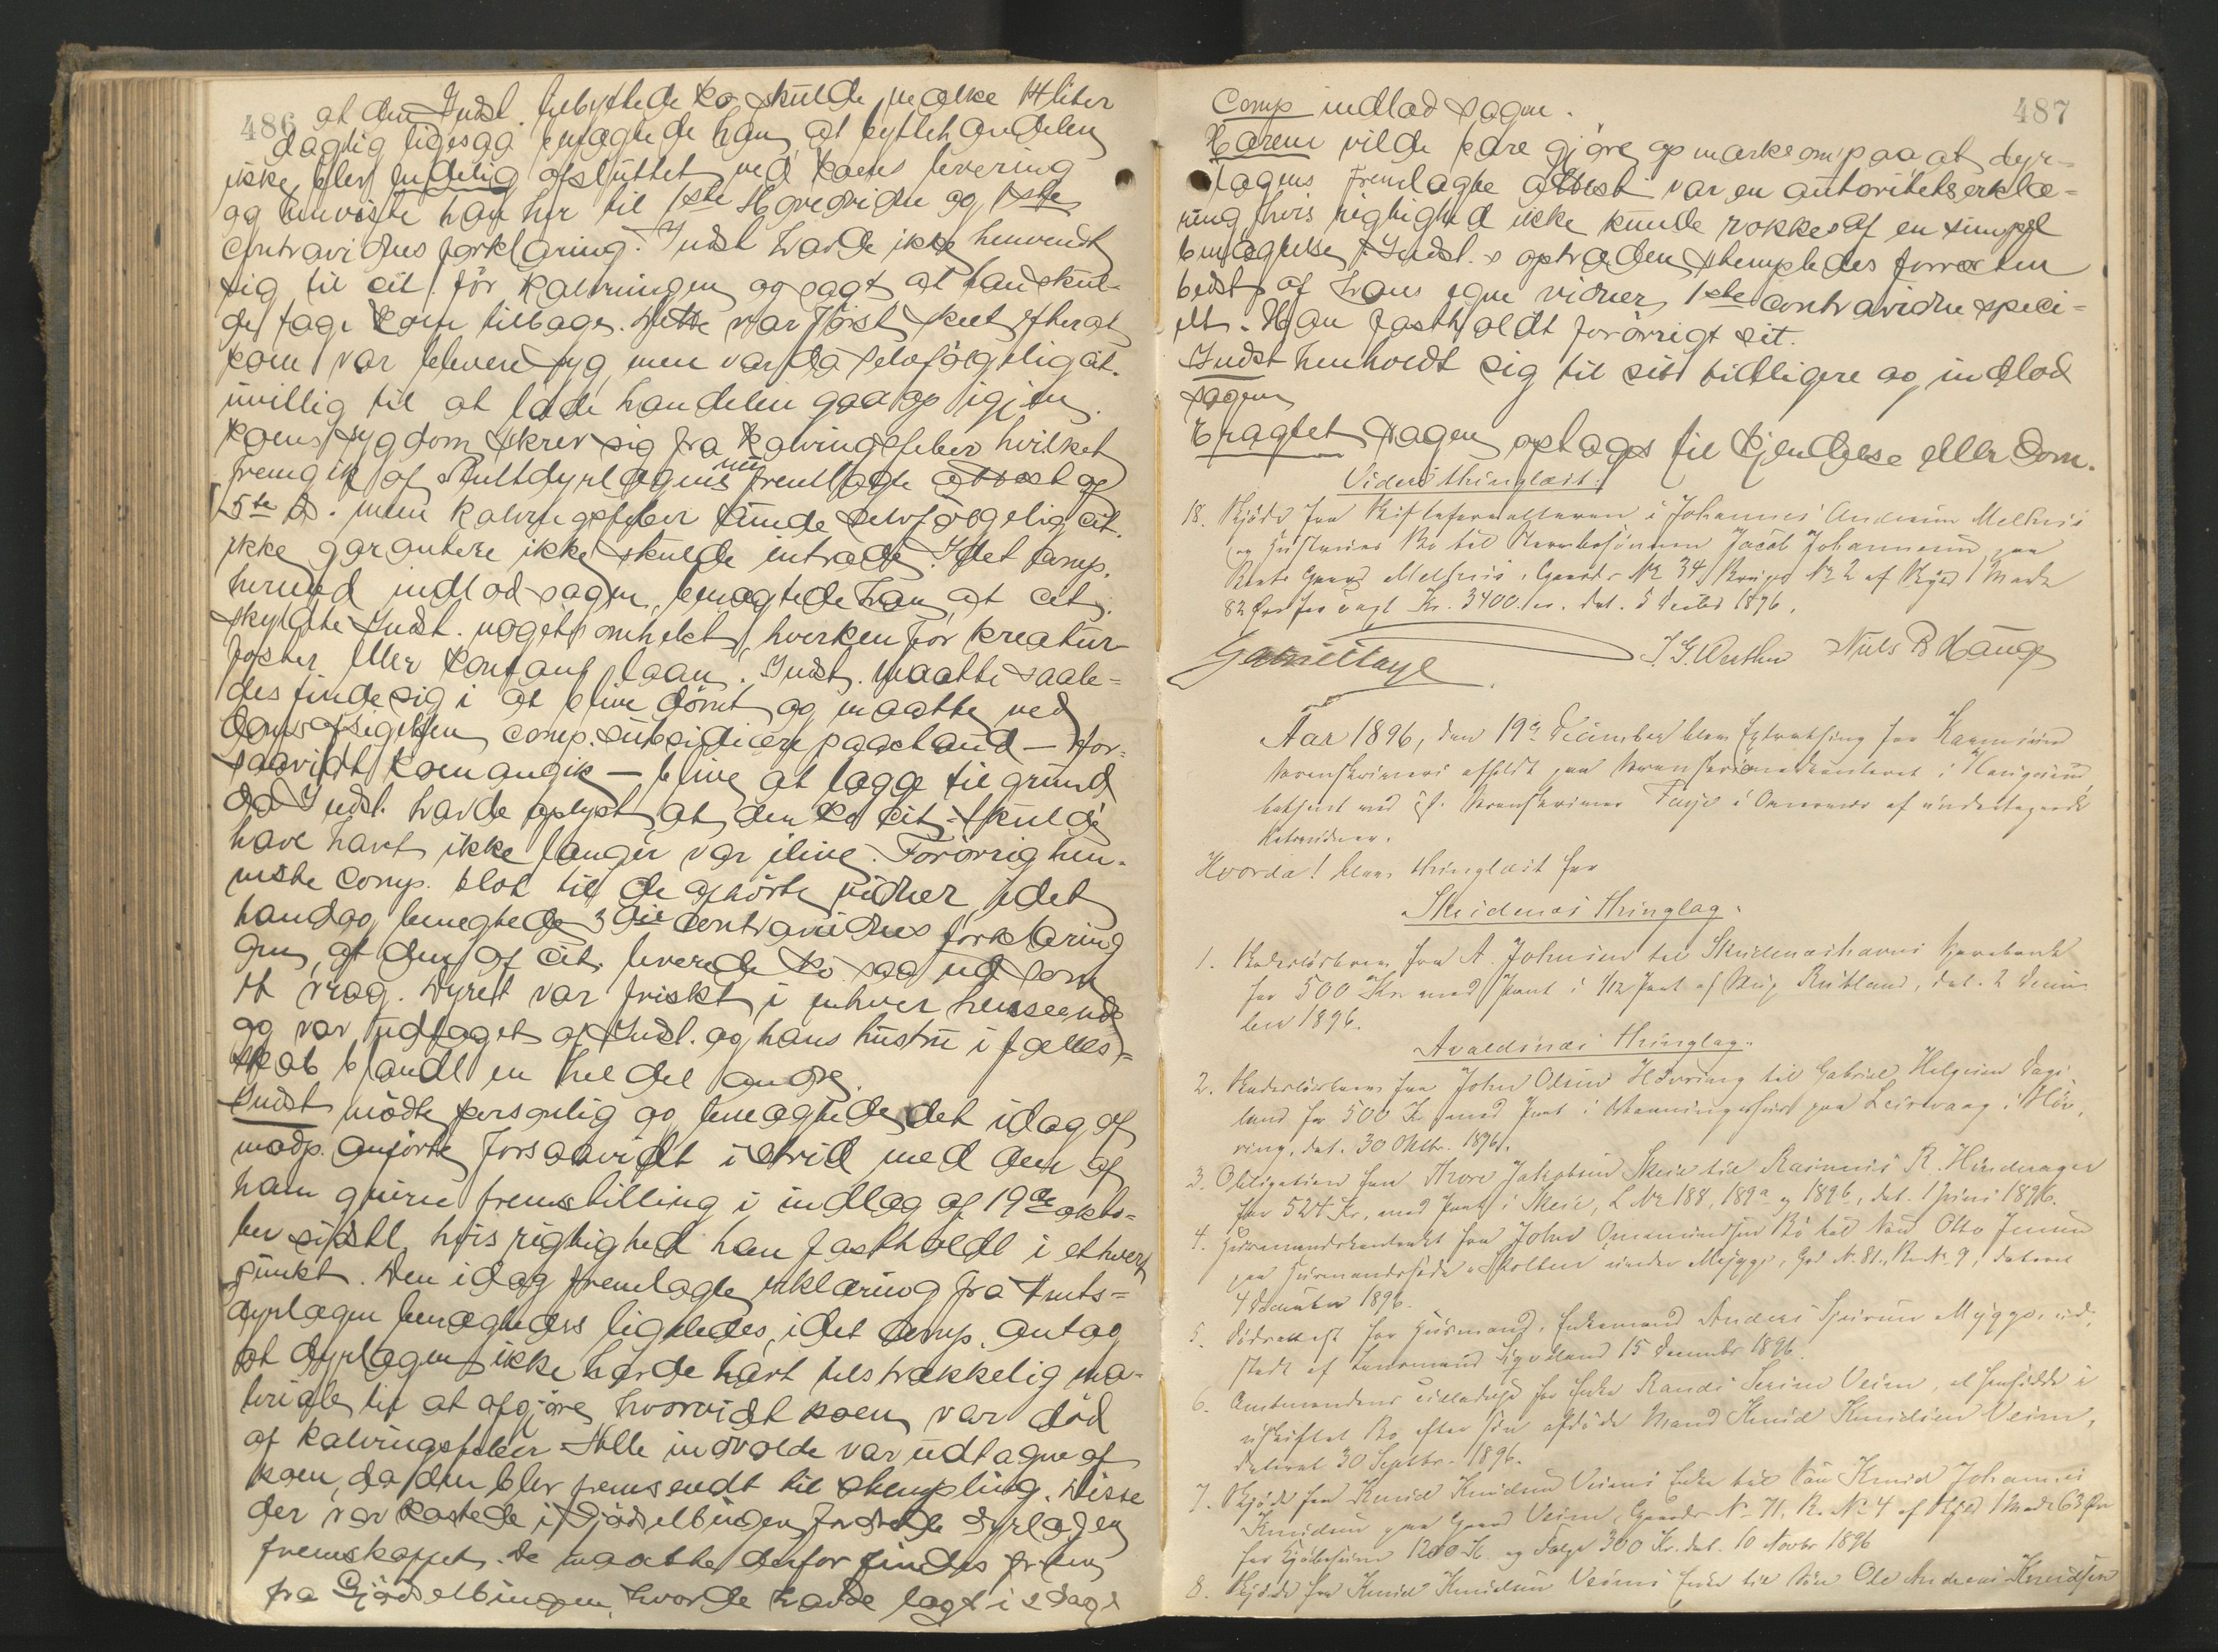 486
at den Indst. tilbyttede ko skulde melke 14 liter
daglig ligesaa benægtede han, at byttehandelen
ikke blev endelig afsluttet ved koens levering
og henviste han her til 1ste Hovedvidne og 1ste
contravidnes forklaring. Indst havde ikke henvendt
sig til cit. før kalvningen og sagt at han skul-
de tage koen tilbage. Dette var først skeet efterat
koen var bleven syg, men var da selvfølgelig cit.
uvillig til at lade handelen gaa op igjen.
Koens sygdom skrev sig fra kalvingsfeber hvilket
fremgik af Amtsdyrlægens nu fremlagte attest af
15de ds. men kalvingsfeber kunde selvfølgelig cit.
ikke garantere ikke skulde intræde. Idet comp.
hermed indlod sagen, benægtede han, at cit.
skyldte Indst. nogetsomhelst, hverken for kreatur-
foster eller kontant laan. Indst. maatte saale-
des finde sig i at blive dømt og maatte ved
domsafsigelsen comp. subsidiære paastand - for-
saavidt koen angik - blive at lægge til grund
da Indst. havde oplyst at den ko cit. skulde
have havt ikke længer var ilive. Forøvrig hen-
viste comp. blot til de afhørte vidner, idet
han dog benegtede 3die contravidnes forklaring
om, at den af cit. leverede ko saa ud som
et vrag. Dyret var friskt i enhver henseende
og var udtaget af Indst. og hans hustru i fælles-
skab blandt en hel del andre.
Indst mødte personlig og benægtede det idag af
modp. anførte forsaavidt i strid med den af
ham givne fremstilling i indlæg af 19de okto-
ber sidstl. hvis rigtighed han fastholdt i ethvert
punkt. Den idag fremlagte erklæring fra Amts-
dyrlægen benægtedes ligeledes, idet comp. antog
at dyrlægen ikke havde havt tilstrækkelig ma-
teriale til at afgjøre hvorvidt koen var død
af kalvingsfeber. Alle indvolde var udtagne af
koen, da den blev fremsendt til stempling. Disse
der var kastede i Gjødselbingen forlangte dyrlægen
fremskaffet. De maatte derfor findes frem
fra Gjødselbingen, hvor de havde lagt i 2 dage
487
Comp indlod sagen.
Harem vilde bare gjøre opmærksom paa at dyr-
lægens fremlagte attest var en autoritetserklæ-
ring hvis rigtighed ikke kunde rokkes af en simpel
benægtelse. Indst.s optræden stempledes forresten
bedst af hans egne vidner, 1ste contravidne speci-
elt. Han fastholdt forøvrigt sit.
Indst henholdt sig til sit tidligere og indlod
sagen
Eragtet Sagen optages til Kjendelse eller Dom.
Videre thinglæst:
18. Skjøde fra Skifteforvalteren i Johannes Andreas Melhus
og Hustrues Bo til Stervbosønnen Jacob Johannesen paa
Gaard Melhus, Gaards No 34 Brugs No 2 af Skyld 1 Mark
82 Øre for Kr. 3400. dat. 5 Decbr 1896.
Gabriel Faye
Niels B Hauge
Aar 1896, den 19de December blev Extrathing for Karmsund
Sorenskriveri afholdt paa Sorenskriverkontoret i Haugesund,
betjent ved cst. Sorenskriver Faye i Overvær af undertegnede
Retsvidner.
Hvorda! blev thinglæst for
Skudenæs Thinglag.
1. Kaderlösbrev fra A. Johnsen til Skudeneshavns Sparebank
for 500 Kr med Pant i 1/12 Part af Skip Rutland, dat. 2 Decem-
ber 1896.
Avaldsnæs Thinglag.
2. fra John Olsen Hövring til Gabriel Helgesen Dags-
land for 500 Kr. med Pant i paa Leirvaag i Höv-
ring, dat. 30 Oktbr. 1896.
3. Obligation fra Thore Jakobsen Skeie til Rasmus R. Hinderager
for 524 Kr, med Pant i Skeie, L No 188, 189a og 189b, dat. 1 Juni 1896.
4. Husmandskontrakt fra John Omundsen Bö til Otto Jensen
paa Husmandspladsen under Mygge, Grd No. 81, B No. 9, dateret
4 December 1896.
5. Dödsattest for Husmand, Enkemand Anders Sjursen Mygge, ud-
stedt af Lensmand 15 December 1896.
6. Amtmandens tilladelse for Enke Randi Serine Veim, at hensidde i
uskiftet Bo efter sin afdöde Mand Knud Knudsen Veim,
dateret 30 Septbr. 1896.
7. Skjøde fra Knud Knudsen Veims Enke til Sön Knud Johannes
Knudsen paa Gaard Veim, Gaards No 71, B. No 4 af Skyld 1 Mark 63 Øre
for Kjøbesum 1200 Kr. og Følge 300 Kr. dat. 10 Novbr 1896
8. Skjøde fra Knud Knudsen Veims Enke til Sön Ole Andreas Knudsen